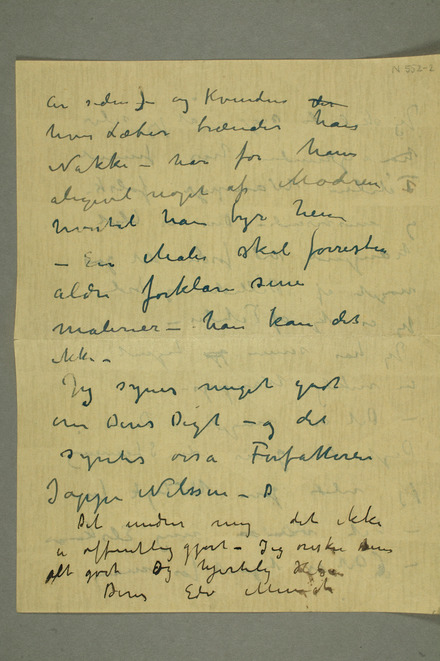 N 552-2
År siden) – og Kvinden der
hvis Læber brænder hans
Nakke – har for ham
alligevel noget af Moderen
hvortil han byr hen
– En Maler skal forresten
aldri forklare sine
malerier – han kan det
ikke –
Jeg synes meget godt
om Deres Digt – og det
syntes ossa Forfatteren
Jappe Nilssen –
Det undrer mig det ikke
er offentliggjort – Jeg ønsker Dem
alt godt og hjertelig
Deres Edv Munch